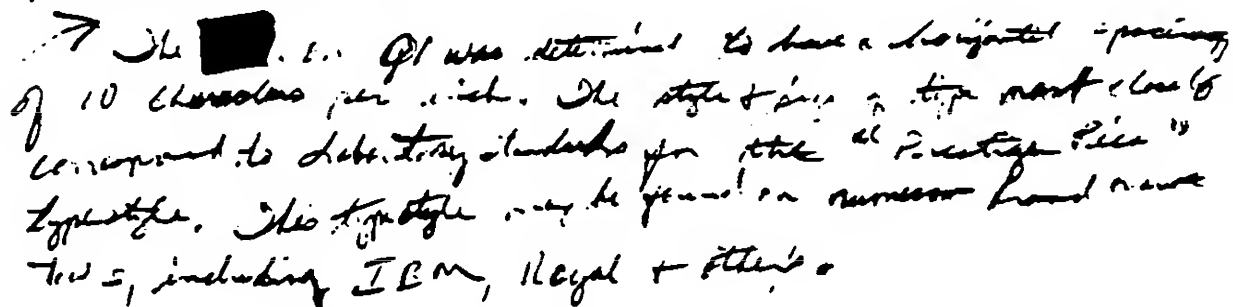 The Q1 was determined to have a horizontal spacing
of 10 characters per inch. The style + size of type most closely
correspond to Laboratory standards for the "Prestige Pica"
typestyle. This typestyle may be found on numerous brand name
including IBM, Royal + others.